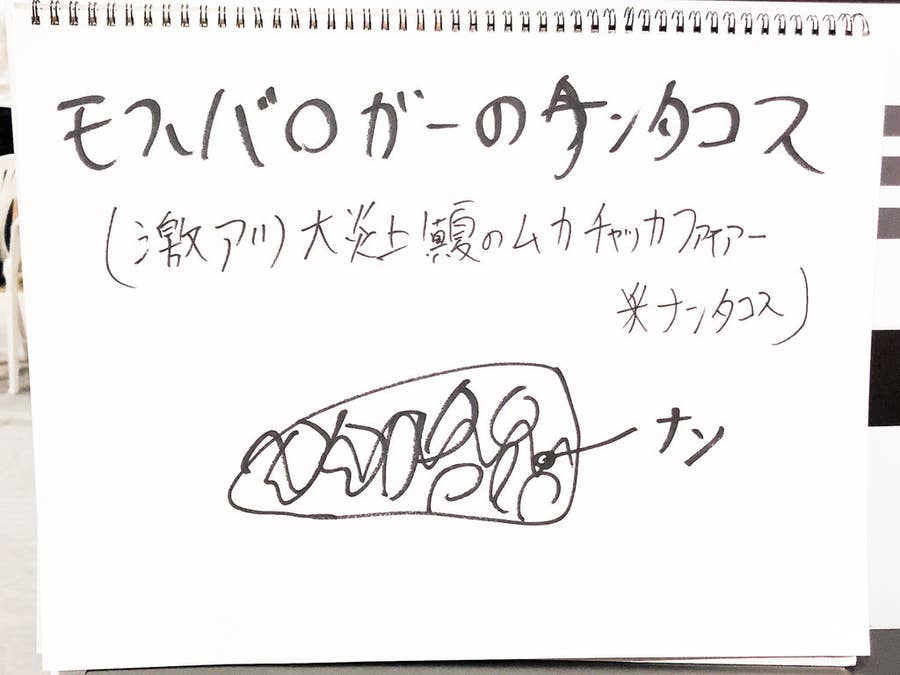 モスバロガーのナンタコス
(激アツ大炎上真夏のムカチャッカファイアー
※ナンタコス)
ナン